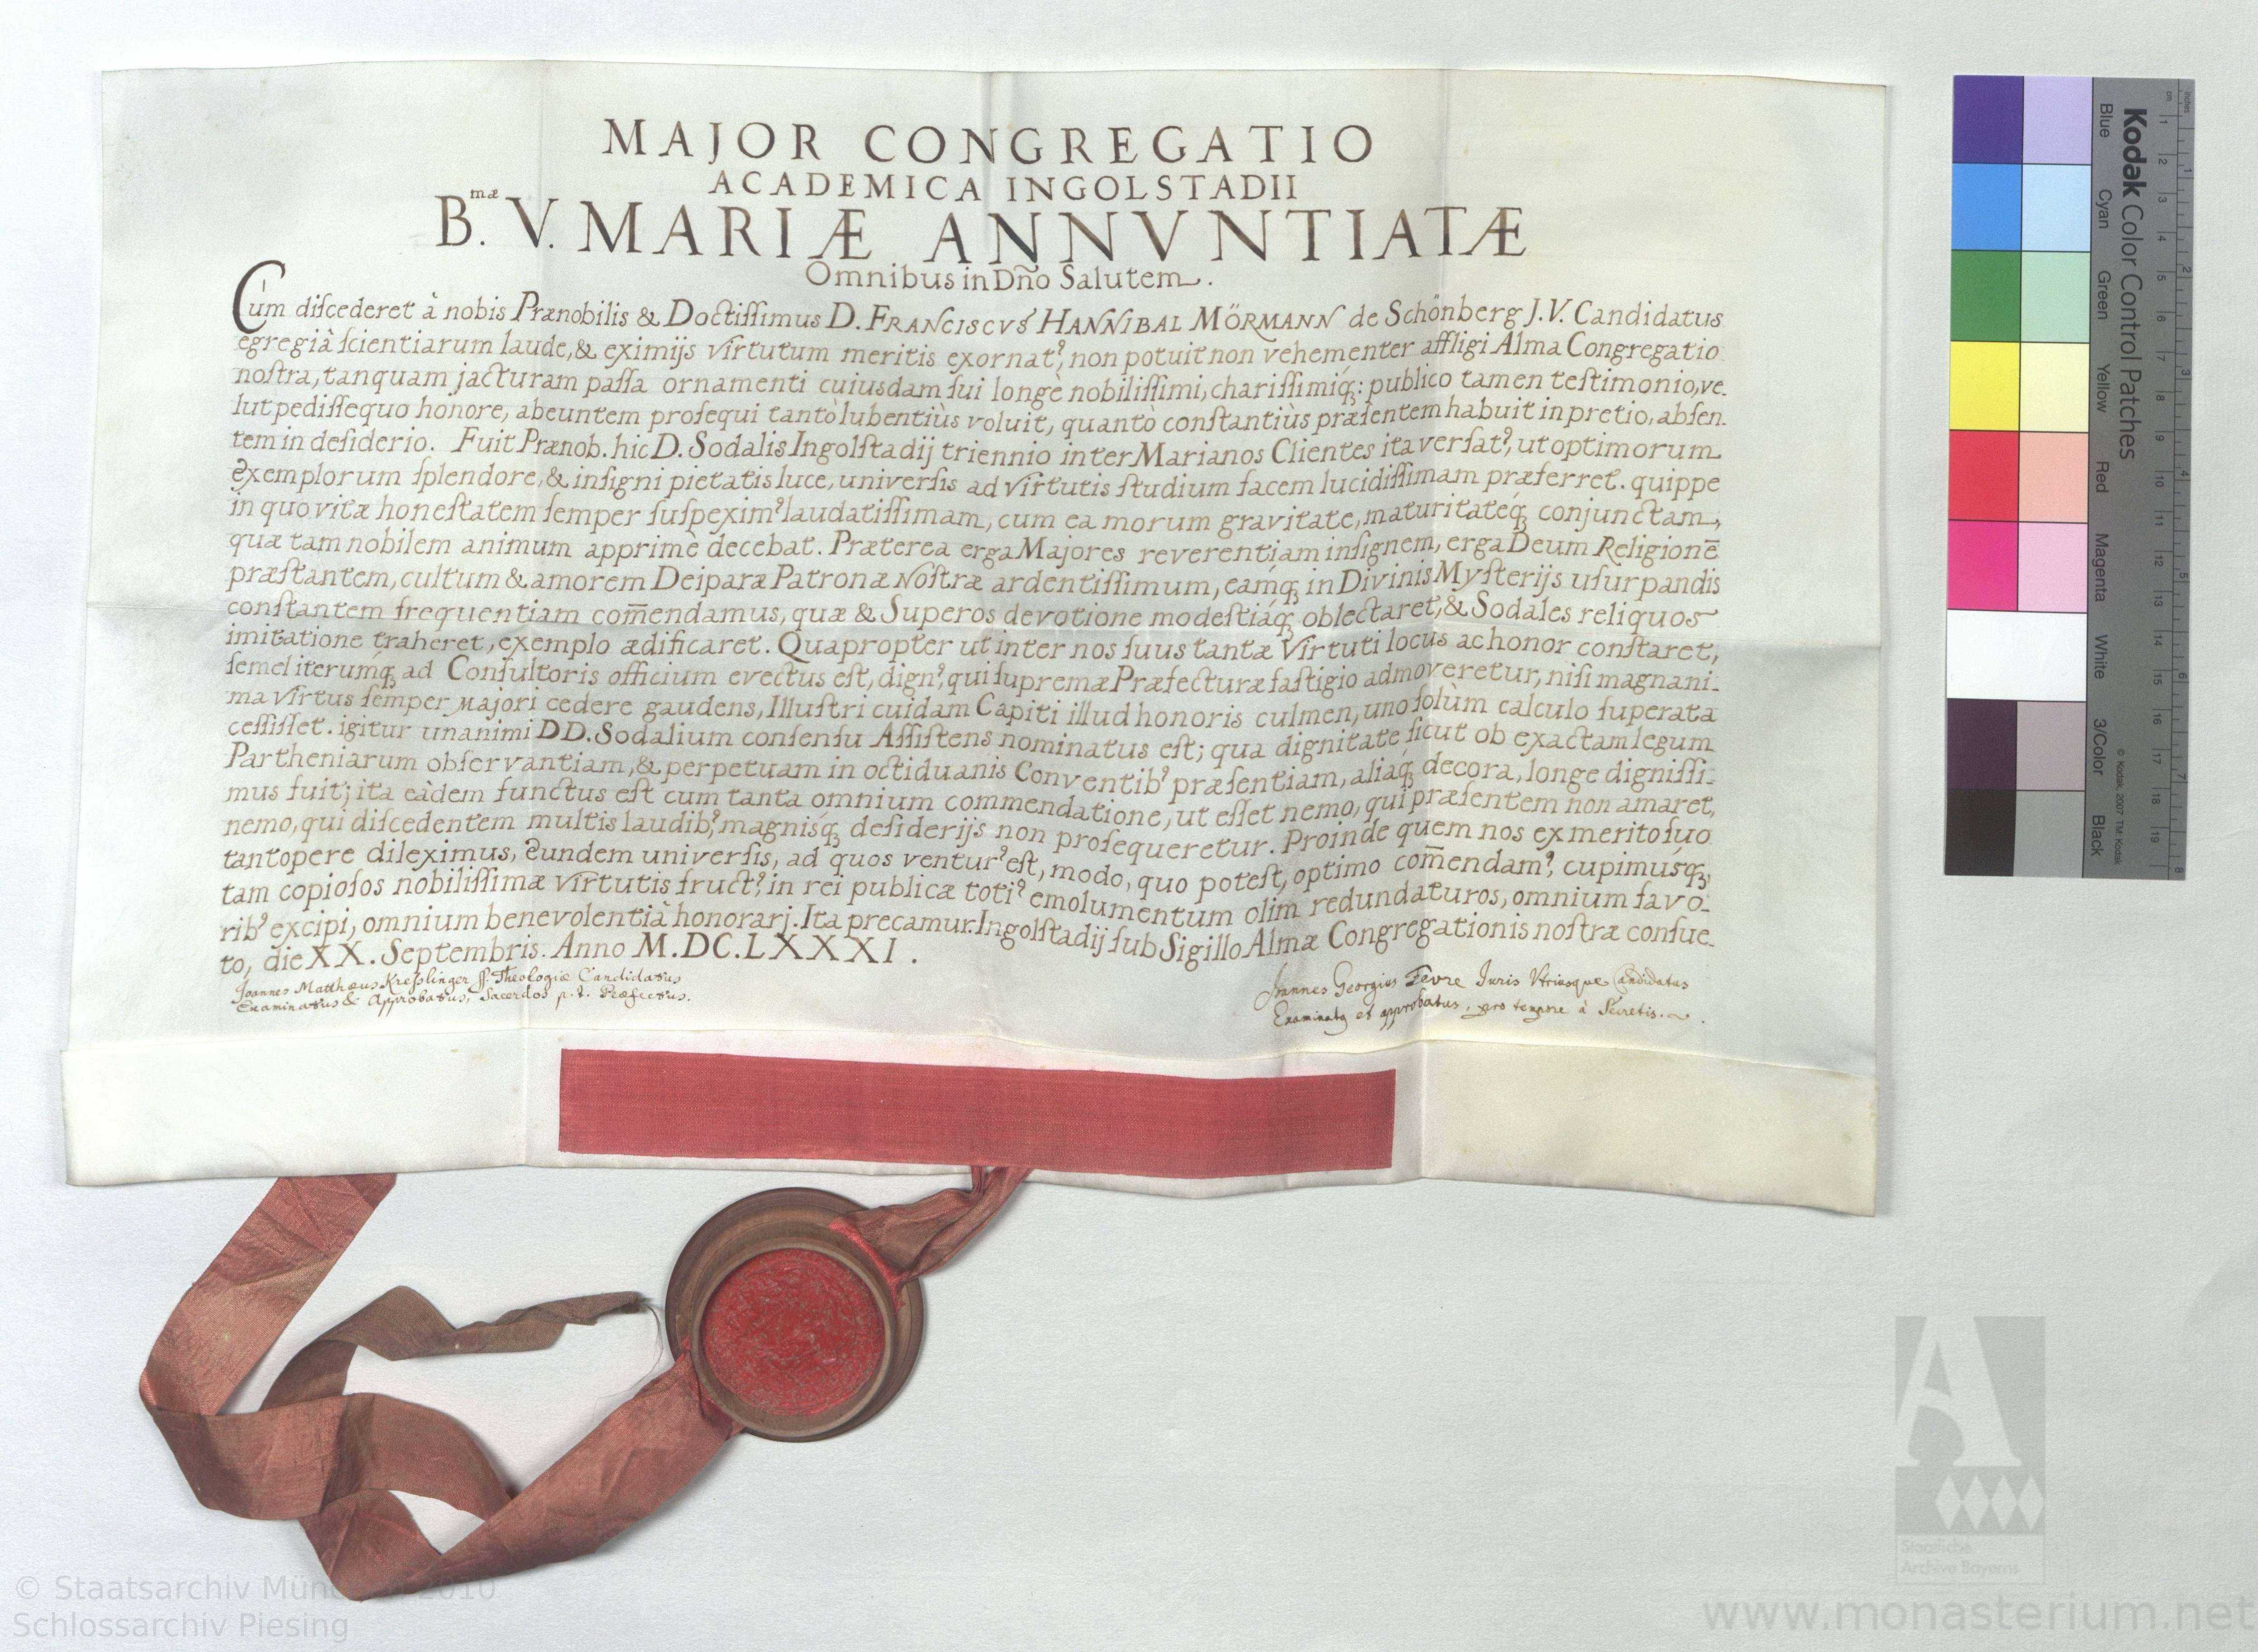 MAJOR CONGREGATIO
ACADEMICA INGOLSTADII
B.mæ V. MARIÆ ANNVNTIATÆ
Omnibus in Dño Salutem.
Cùm diſcederet à nobis Prænobilis & Doctiſſimus D. FRANCISCVS HANNIBAL MÖRMANN de Schönberg J.V. Candidatus
egregiâ ſcientiarum laude, & eximijs virtutum meritis exornatꝰ, non potuit non vehementer affligi Alma Congregatio
noſtra, tanquam jacturam paſſa ornamenti cuiusdam ſui longè nobiliſſimi, chariſſimiq́ꝫ: publico tamen teſtimonio, ve-
lut pediſſequo honore, abeuntem proſequi tantò lubentiùs voluit, quantò conſtantiùs præſentem habuit in pretio, abſen-
tem in deſiderio. Fuit Prænob. hic D. Sodalis Ingolſtadij triennio inter Marianos Clientes ita verſatꝰ, ut optimorum
exemplorum ſplendore, & inſigni pietatis luce, univerſis ad virtutis ſtudium facem lucidiſſimam præferret. quippe
in quo vitæ honeſtatem ſemper ſuſpeximꝰ laudatiſſimam, cum ea morum gravitate, maturitateq́ꝫ conjunctam,
quæ tam nobilem animum apprimè decebat. Præterea erga Majores reverentiam inſignem, erga Deum Religionē
præſtantem, cultum & amorem Deiparæ Patronæ Noſtræ ardentiſſimum, eamq́ꝫ in Divinis Myſterijs uſurpandis
conſtantem frequentiam com̄endamus, quæ & Superos devotione modeſtiáqꝫ oblectaret, & Sodales reliquos
imitatione traheret, exemplo ædificaret. Quapropter ut inter nos ſuus tantæ Virtuti locus ac honor conſtaret,
ſemel iterumq́ꝫ ad Conſultoris officium evectus eſt, dignꝰ, qui ſupremæ Præfecturæ faſtigio admoveretur, niſi magnani-
ma virtus ſemper majori cedere gaudens, Illuſtri cuidam Capiti illud honoris culmen, uno ſolùm calculo ſuperata
ceſſiſſet. igitur unanimi DD. Sodalium conſenſu Aſſiſtens nominatus eſt; qua dignitate ſicut ob exactam legum
Partheniarum obſervantiam, & perpetuam in octiduanis Conventibꝰ præſentiam, aliaq́ꝫ decora, longe digniſſi-
mus fuit; ita eàdem functus eſt cum tanta omnium commendatione, ut eſſet nemo, qui præſentem non amaret,
nemo, qui diſcedentem multis laudibꝰ, magnisq́ꝫ deſiderijs non proſequeretur. Proinde quem nos ex merito ſuo
tantopere dileximus, eundem univerſis, ad quos venturꝰ eſt, modo, quo poteſt, optimo com̄endamꝰ, cupimusq́ꝫ,
tam copioſos nobiliſſimæ virtutis fructꝰ, in rei publicæ totiꝰ emolumentum olim redundaturos, omnium favo-
ribꝰ excipi, omnium benevolentiâ honorari. Ita precamur. Ingolſtadij ſub Sigillo Almæ Congregationis noſtræ conſue-
to, die XX. Septembris. Anno M.DC.LXXXI.
Joannes Matthæus Kreſslinger SS. Theologiæ Candidatus
Examinatus & Approbatus, Sacerdos p.t. Præfectus.
Joannes Georgius Fevre Iuris Vtriusque Candidatus
Examinatꝰ et approbatus, pro tempore à Secretis.
Kodak Color Control Patches
Blue Cyan Green Yellow Red Magenta White 3/Color Black
© Kodak, 2007 TM: Kodak
Inches 1 2 3 4 5 6 7 8
cm 1 2 3 4 5 6 7 8 9 10 11 12 13 14 15 16 17 18 19
Staatliche
Archive Bayerns
© Staatsarchiv München 2010
Schlossarchiv Piesing
www.monasterium.net